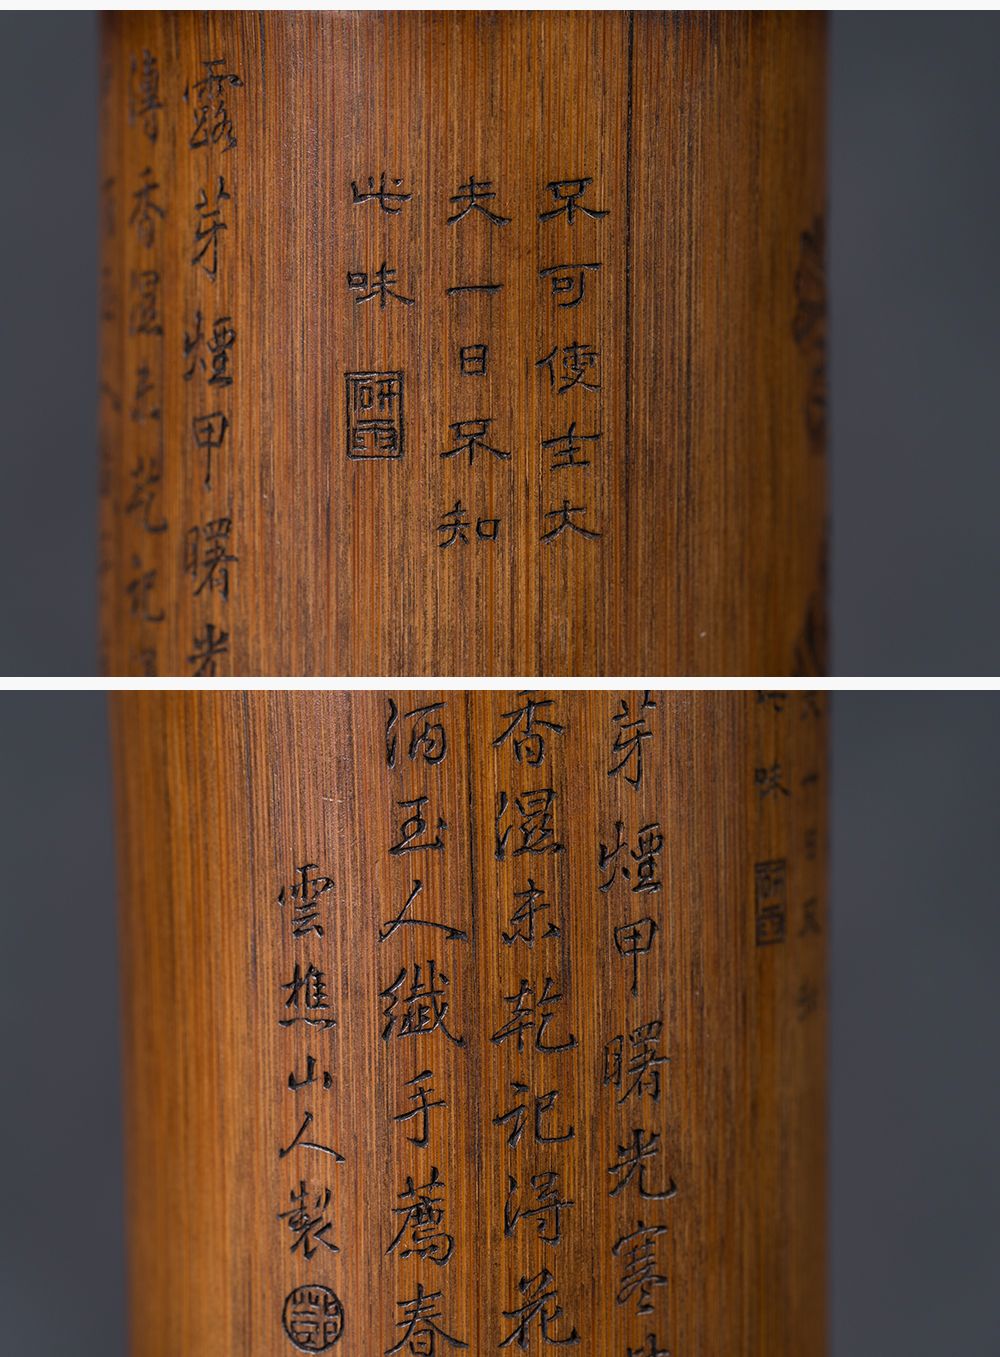 不可使士大
夫一日不知
此味
露芽煙甲曙光
香濕未乾記
夫一日不知
此味
芽煙甲曙光寒
香濕未乾記得花
酒玉人纖手薦春
雲樵山人製